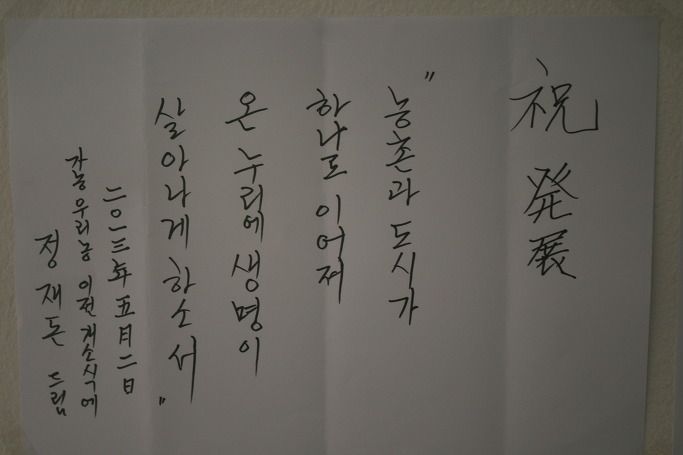 祝 発展
"농촌과 도시가
하나로 이어져
온 누리에 생명이
살아나게 하소서"
二０一三年 五月 二日
가농 우리농 이전 개소식에
정재돈 드림